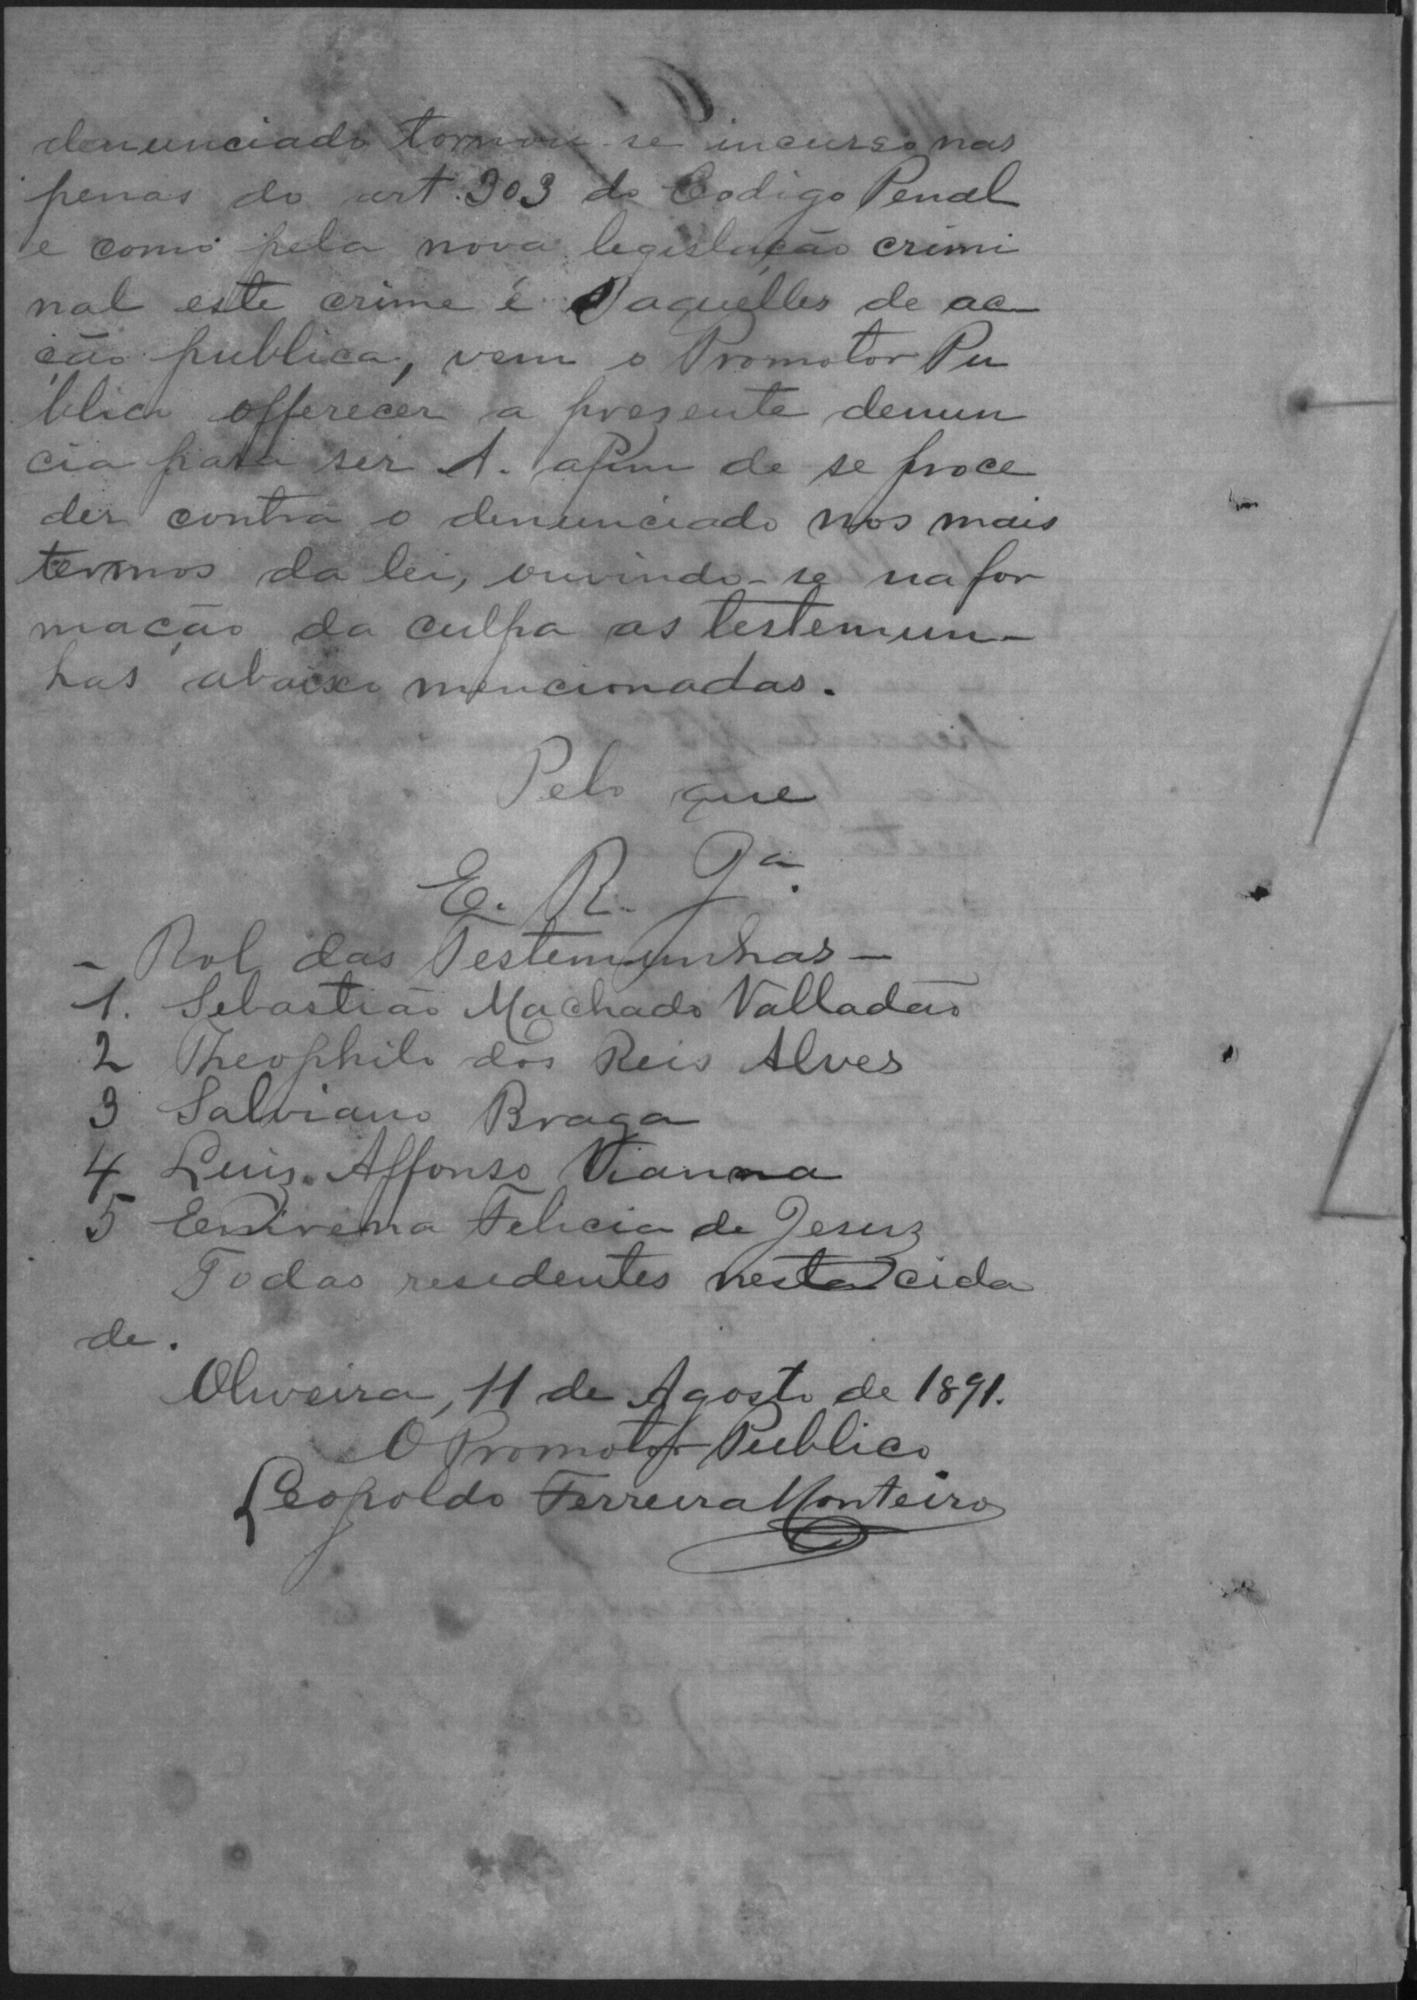 denunciado tornou-se incurso nas
penas do art. 303 do Codigo Penal
e como pela nova legislação crimi
nal este crime é daquelles de ac-
ção publica, vem o Promotor Pu
blico offerecer a prezente denun
cia para ser A. afim de se proce
der contra o denunciado nos mais
termos da lei, ouvindo-se na for
mação da culpa as testemun-
has abaixo mencionadas.
Pelo que
E. R. J.ª
- Rol das Testemunhas -
1. Sebastião Machado Valladão
2 Theophilo dos Reis Alves
3 Salviano Braga
4 Luiz Affonso Vianna
5 Felicia de Jesuz
Todas residentes nesta cida
de.
Oliveira, 11 de Agosto de 1891.
O Promotor Publico
Leopoldo Ferreira Monteiro